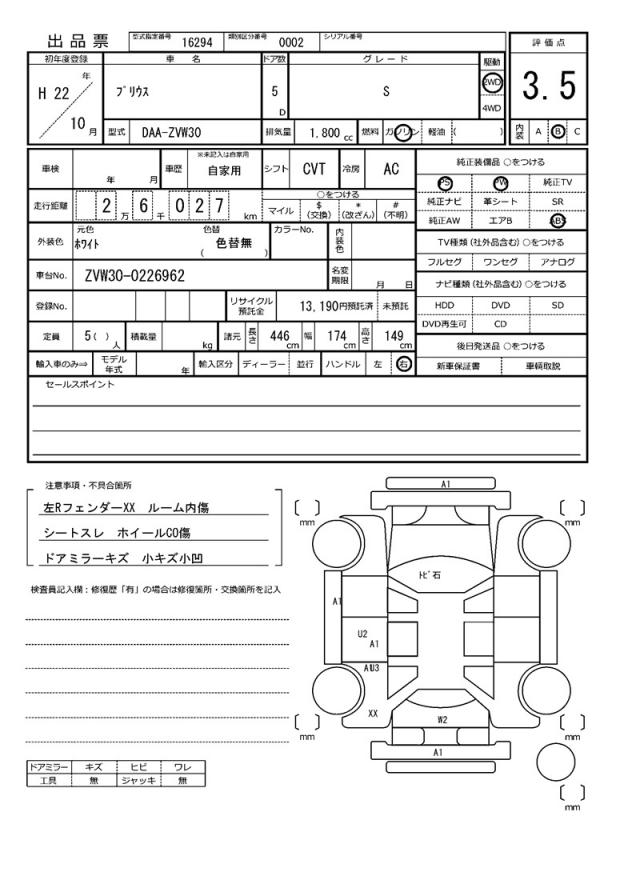 出品票 型式指定番号 16294 類別区分番号 0002 シリアル番号
初年度登録 車名 ドア数 グレード 駆動 評価点
H 22 年 10 月 ﾌﾟﾘｳｽ 5 D S 2WD 4WD 3.5
型式 DAA-ZVW30 排気量 1,800 cc 燃料 ガソリン 軽油 ( ) 内装 A B C
車検 年 月 車歴 ※未記入は自家用 自家用 シフト CVT 冷房 AC 純正装備品 ○をつける
PS PW 純正TV
走行距離 2 万 6 千 0 2 7 km ○をつける 純正ナビ 革シート SR
マイル $(交換) *(改ざん) #(不明) 純正AW エアB ABS
外装色 元色 ﾎﾜｲﾄ 色替 色替無 ( ) カラーNo. 内装色 TV種類(社外品含む)○をつける
フルセグ ワンセグ アナログ
車台No. ZVW30-0226962 名変期限 月 日 ナビ種類(社外品含む)○をつける
登録No. リサイクル預託金 13,190円預託済 未預託 HDD DVD SD
DVD再生可 CD
定員 5( ) 人 積載量 kg 諸元 長さ 446 cm 幅 174 cm 高さ 149 cm 後日発送品 ○をつける
輸入車のみ⇒ モデル年式 年 輸入区分 ディーラー 並行 ハンドル 左 右 新車保証書 車輌取説
セールスポイント
注意事項・不具合箇所
左RフェンダーXX ルーム内傷
シートスレ ホイールCO傷
ドアミラーキズ 小キズ小凹
検査員記入欄:修復歴「有」の場合は修復箇所・交換箇所を記入
A1
[ ] mm [ ] mm
ﾄﾋﾞ石
A1
U2
A1
A1U3
XX
W2
[ ] mm [ ] mm
A1
ドアミラー キズ ヒビ ワレ
工具 無 ジャッキ 無
[ ] mm